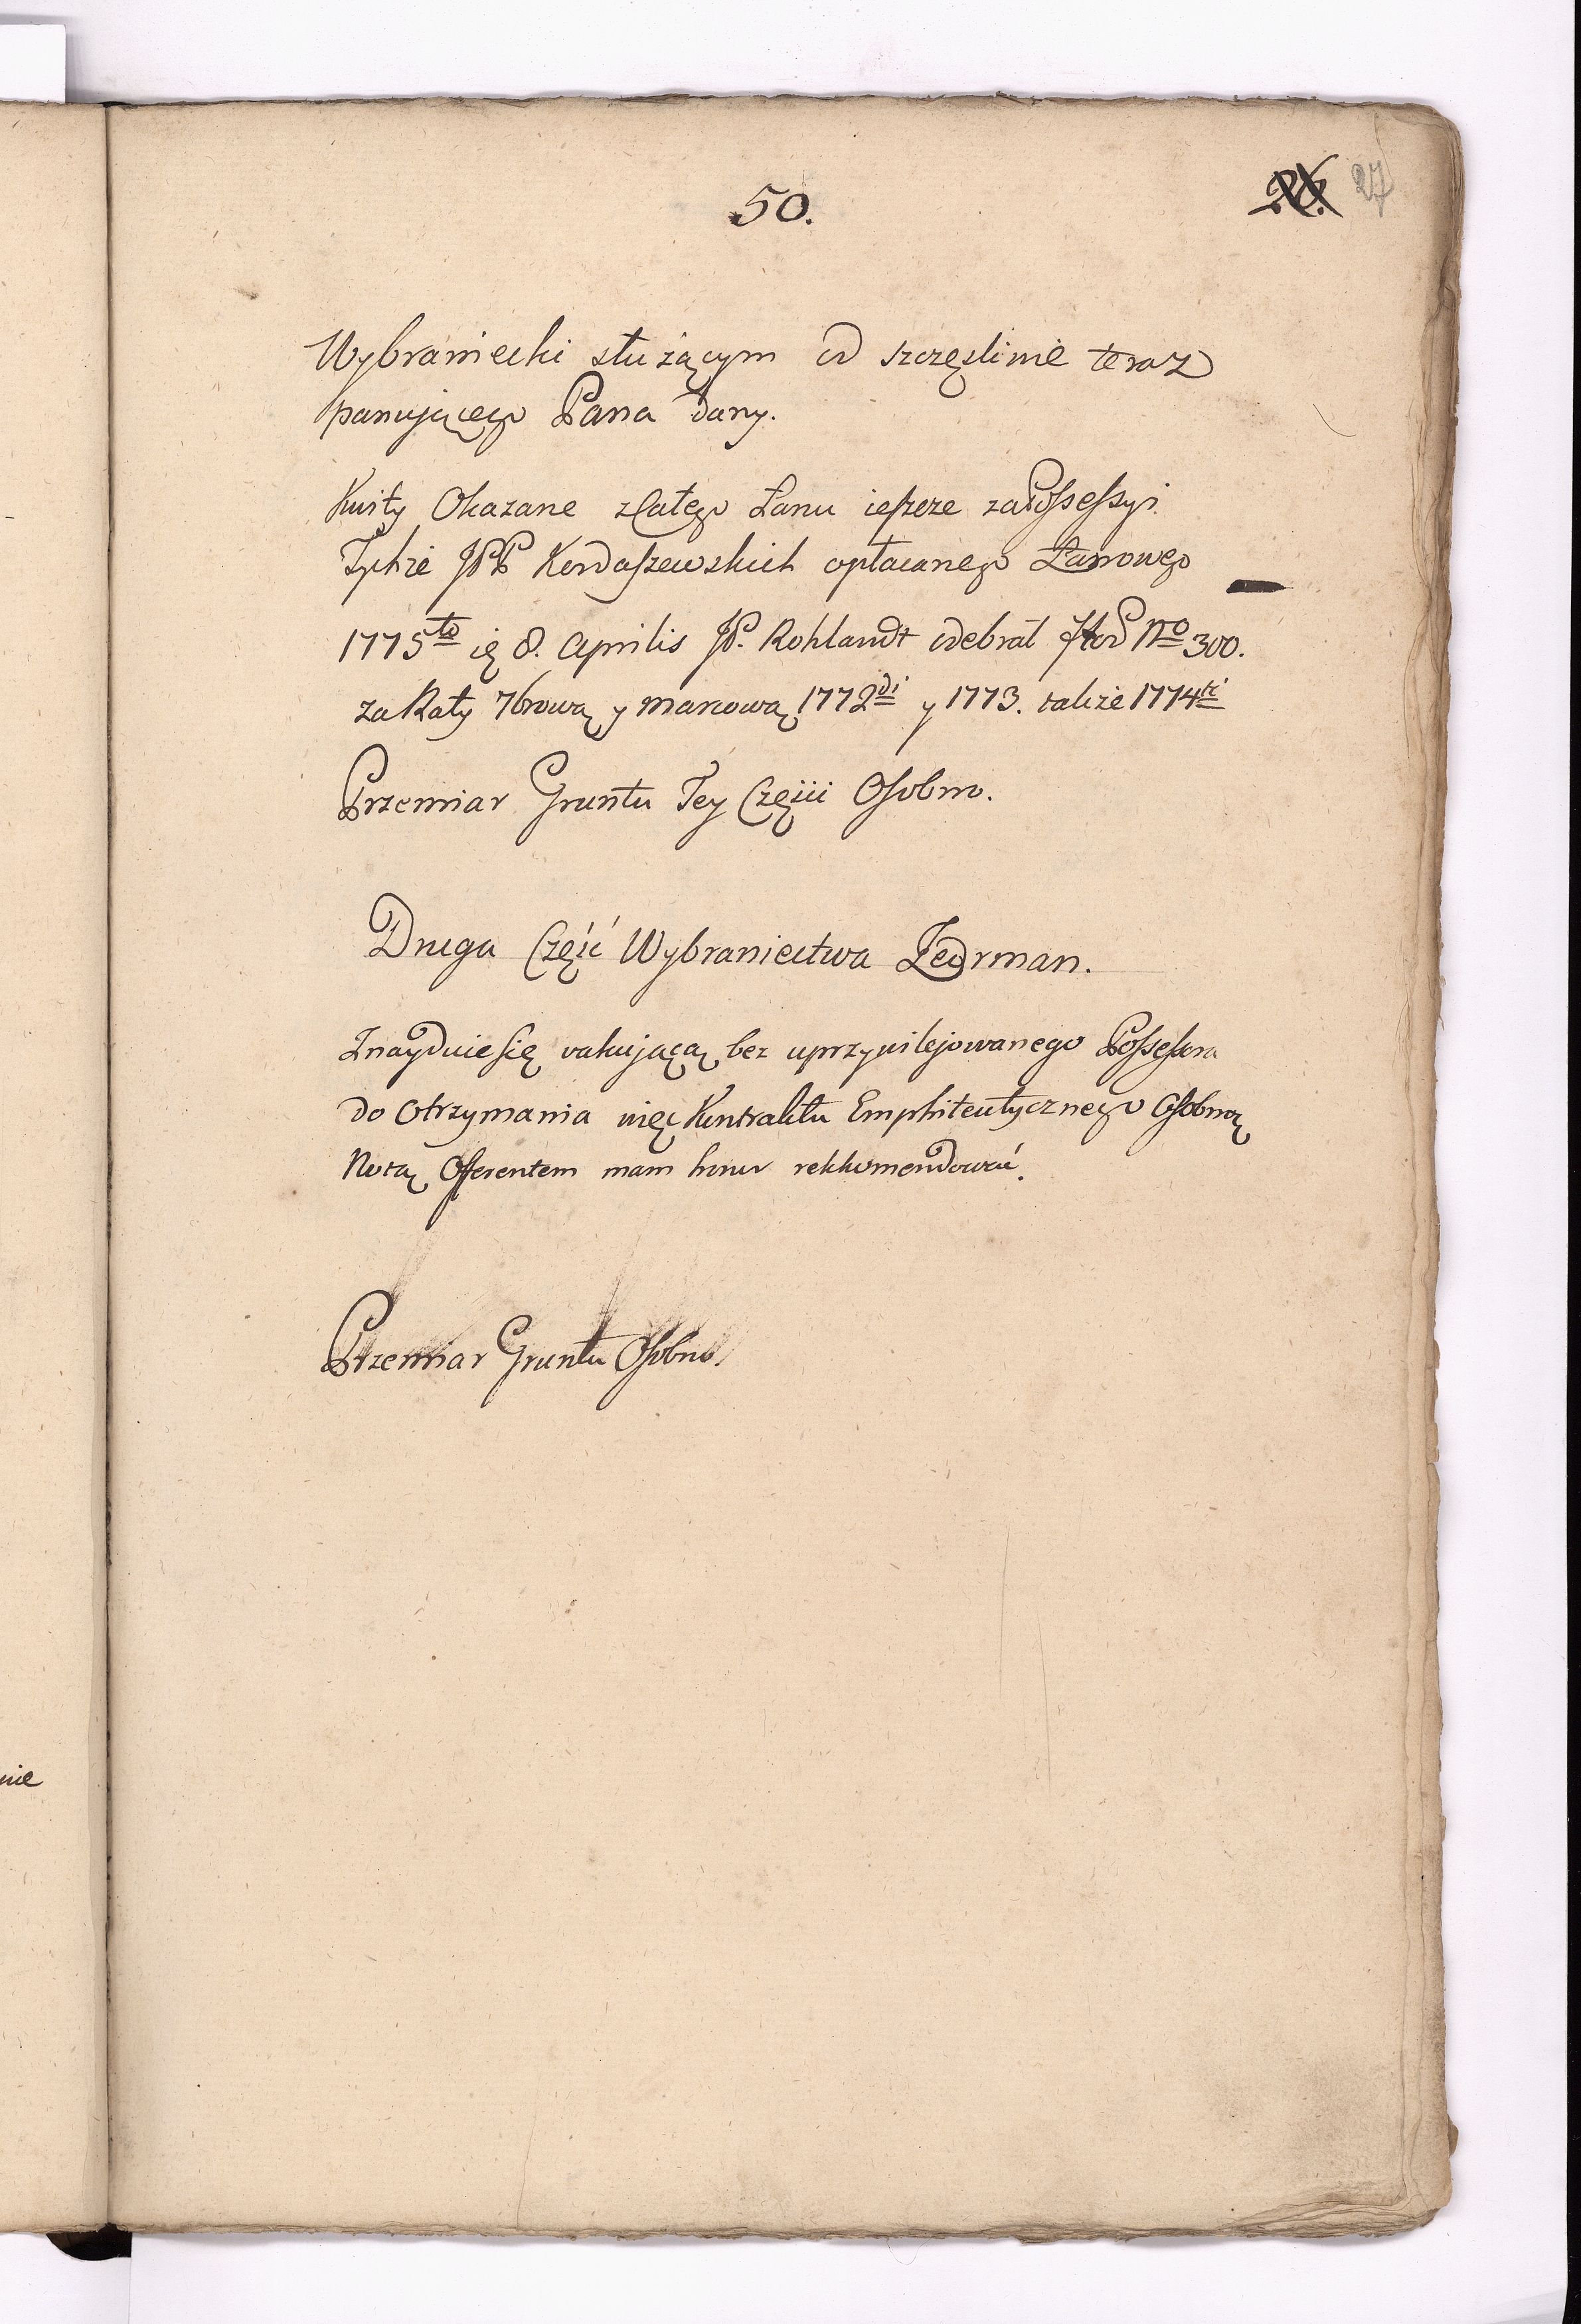 50.
26. 27
Wybraniecki służącym od szczęsliwie teraz
panującego Pana dany.
Kwity Okazane zCałego Łanu ieszcze zaPossessyi
Tychże JPP Kordaszewskich opłacanego Łanowego
1775to 8. Aprilis JP. Rohlandt odebrał No 300.
za Raty 7brową y marcową 1772di y 1773. także 1774ti
Przemiar Gruntu Tey Części Osobno.
Druga Część Wybraniectwa Ledrman.
Znayduie się vakująca bez uprzywilejowanego Possessora
do otrzymania więc Kontraktu Emphiteutycznego Osobną
Notą Offerentem mam honor rekkomendować.
Przemiar Gruntu Osobno.
nie